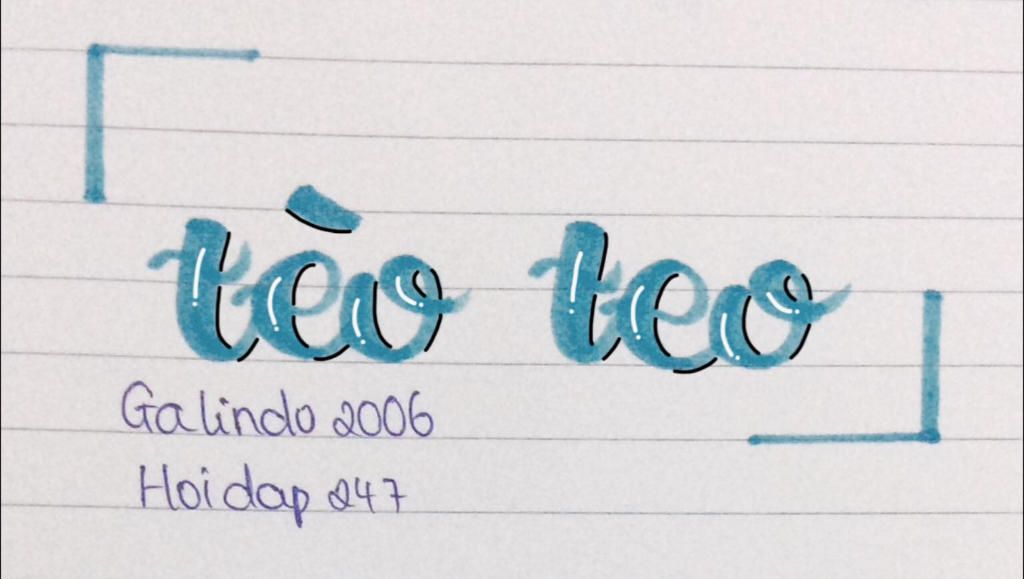 tèo teo
Galindo 2006
Hoidap 247